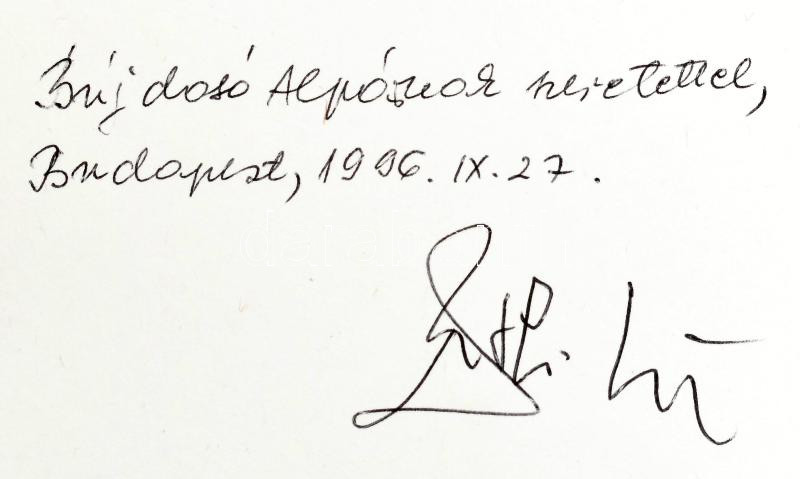 Bujdosó Alpárnak szeretettel,
Budapest, 1996. IX. 27.